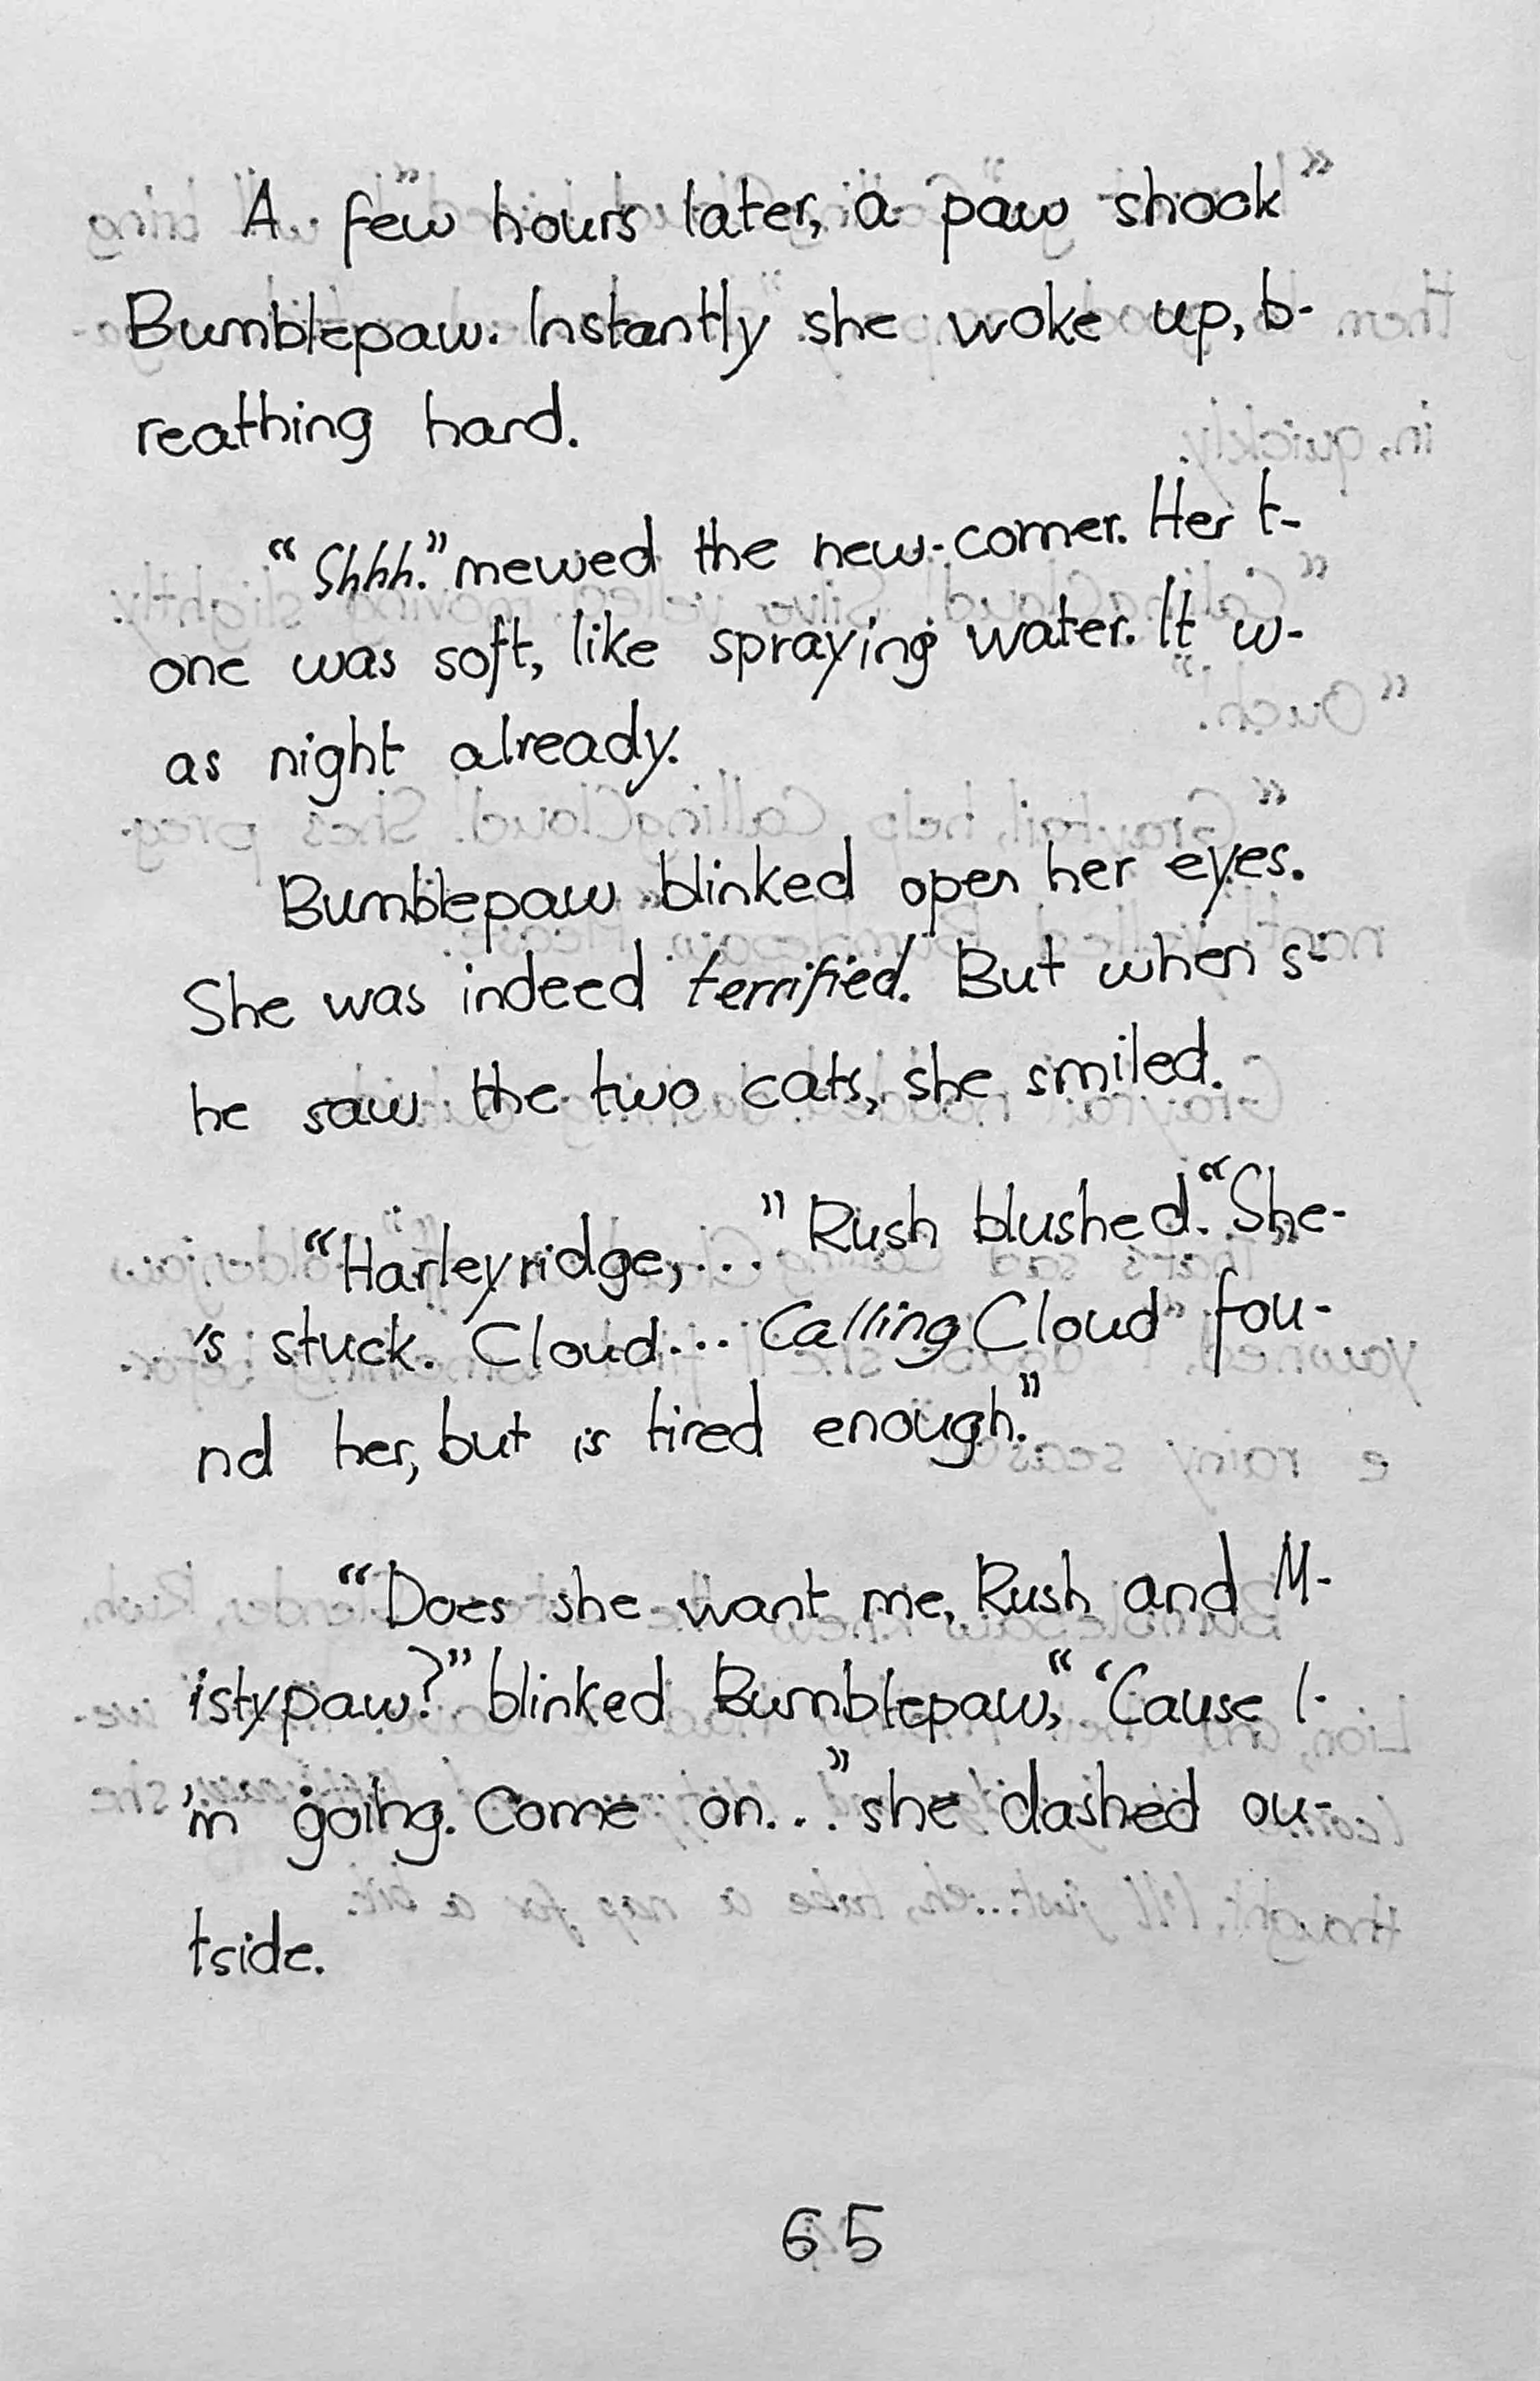 A few hours later, a paw shook
Bumblepaw. Instantly she woke up, b-
reathing hard.
"Shhh." mewed the new-comer. Her t-
one was soft, like spraying water. It w-
as night already.
Bumblepaw blinked open her eyes.
She was indeed terrified. But when s-
he saw the two cats, she smiled.
"Harleyridge,..." Rush blushed. "She-
's stuck. Cloud... Calling Cloud fou-
nd her, but is tired enough."
"Does she want me, Rush and M-
istypaw?" blinked Bumblepaw, "'Cause I-
'm going. Come on..." she dashed ou-
tside.
65